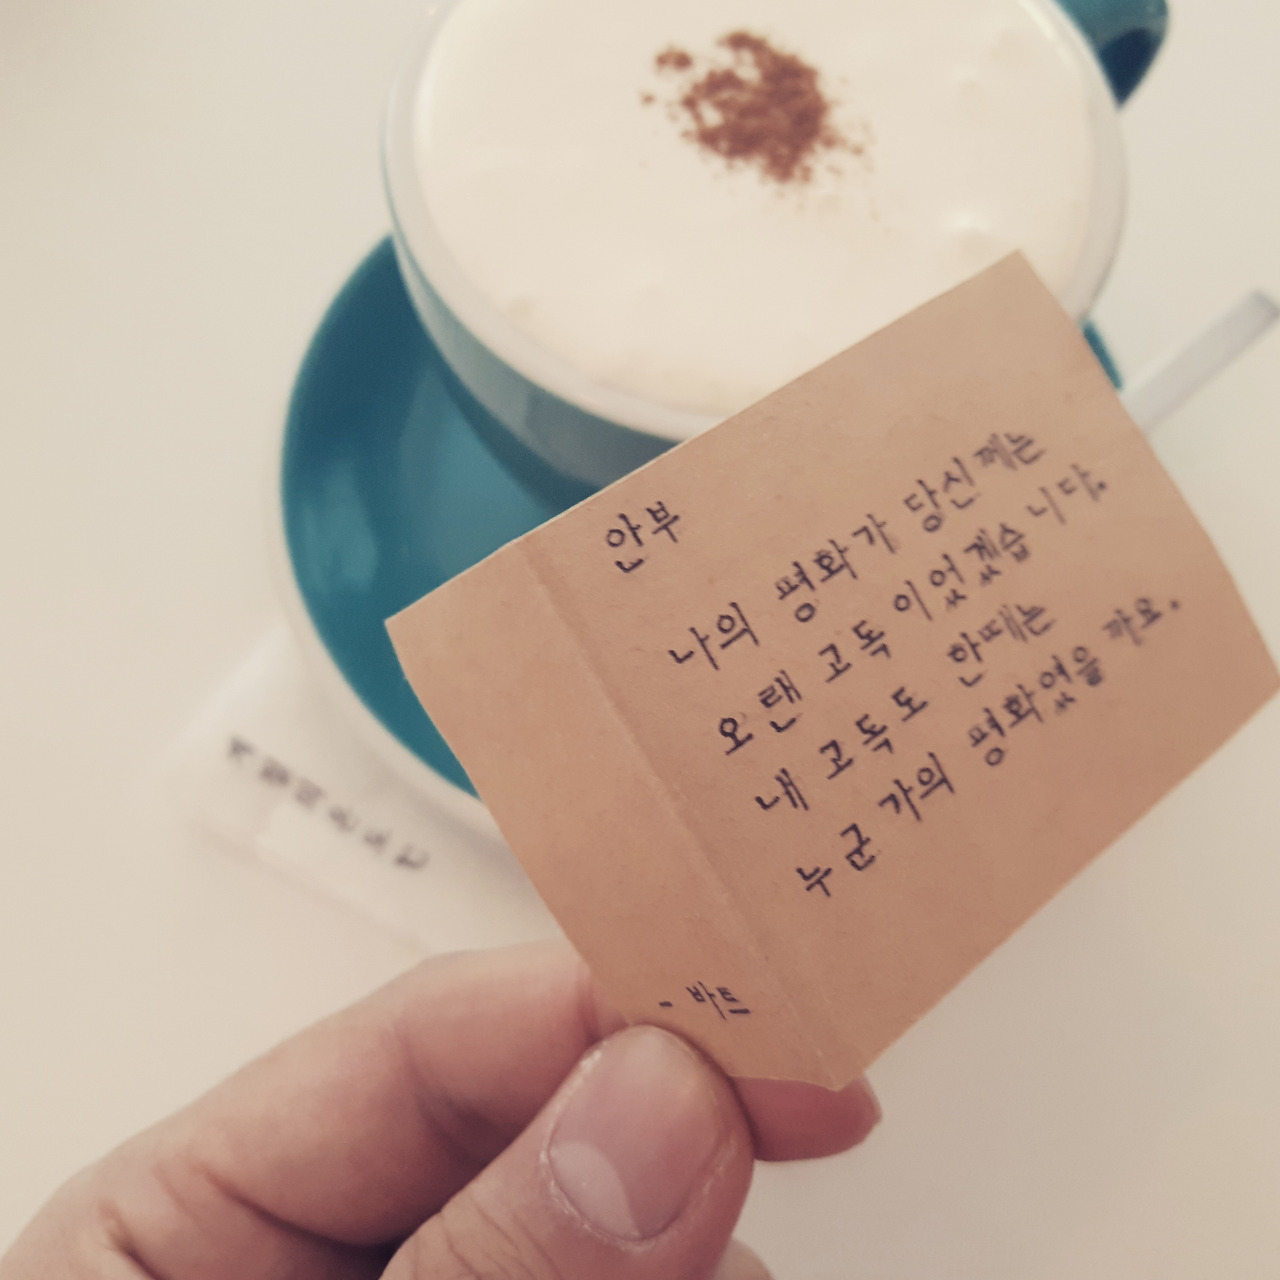 안부
나의 평화가 당신께는
오랜 고독이었겠습니다.
내 고독도 한때는
누군가의 평화였을까요.
- 바트